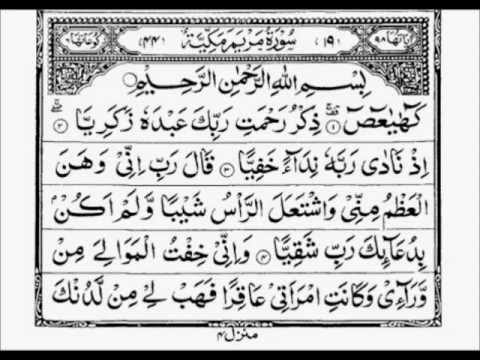 اٰیاتها ٩٨ (١٩) سُوْرَةُ مَرْیَمَ مَكِّیَّةٌ (٤٤) ركوعاتها ٦
بِسْمِ اللّٰهِ الرَّحْمٰنِ الرَّحِیْمِ
كٓهٰیٰعٓصٓ ۚ‏﴿۱﴾ ذِكْرُ رَحْمَتِ رَبِّكَ عَبْدَهٗ زَكَرِیَّا ۖۚ‏﴿۲﴾
اِذْ نَادٰى رَبَّهٗ نِدَآءً خَفِیًّا ﴿۳﴾ قَالَ رَبِّ اِنِّیْ وَهَنَ
الْعَظْمُ مِنِّیْ وَاشْتَعَلَ الرَّاْسُ شَیْبًا وَّلَمْ اَكُنْۢ
بِدُعَآئِكَ رَبِّ شَقِیًّا ﴿۴﴾ وَاِنِّیْ خِفْتُ الْمَوَالِیَ مِنْ
وَّرَآءِیْ وَكَانَتِ امْرَاَتِیْ عَاقِرًا فَهَبْ لِیْ مِنْ لَّدُنْكَ
منزل ۴